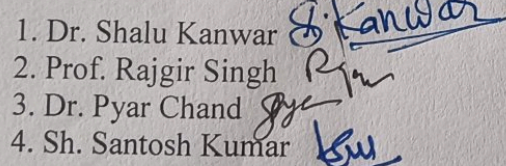 1. Dr. Shalu Kanwar S. Kanwar
2. Prof. Rajgir Singh
3. Dr. Pyar Chand
4. Sh. Santosh Kumar